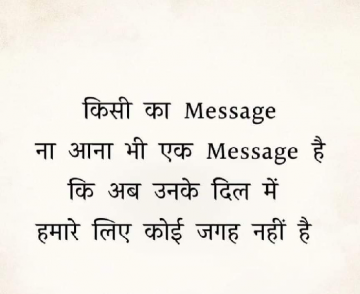 किसी का Message
ना आना भी एक Message है
कि अब उनके दिल में
हमारे लिए कोई जगह नहीं है